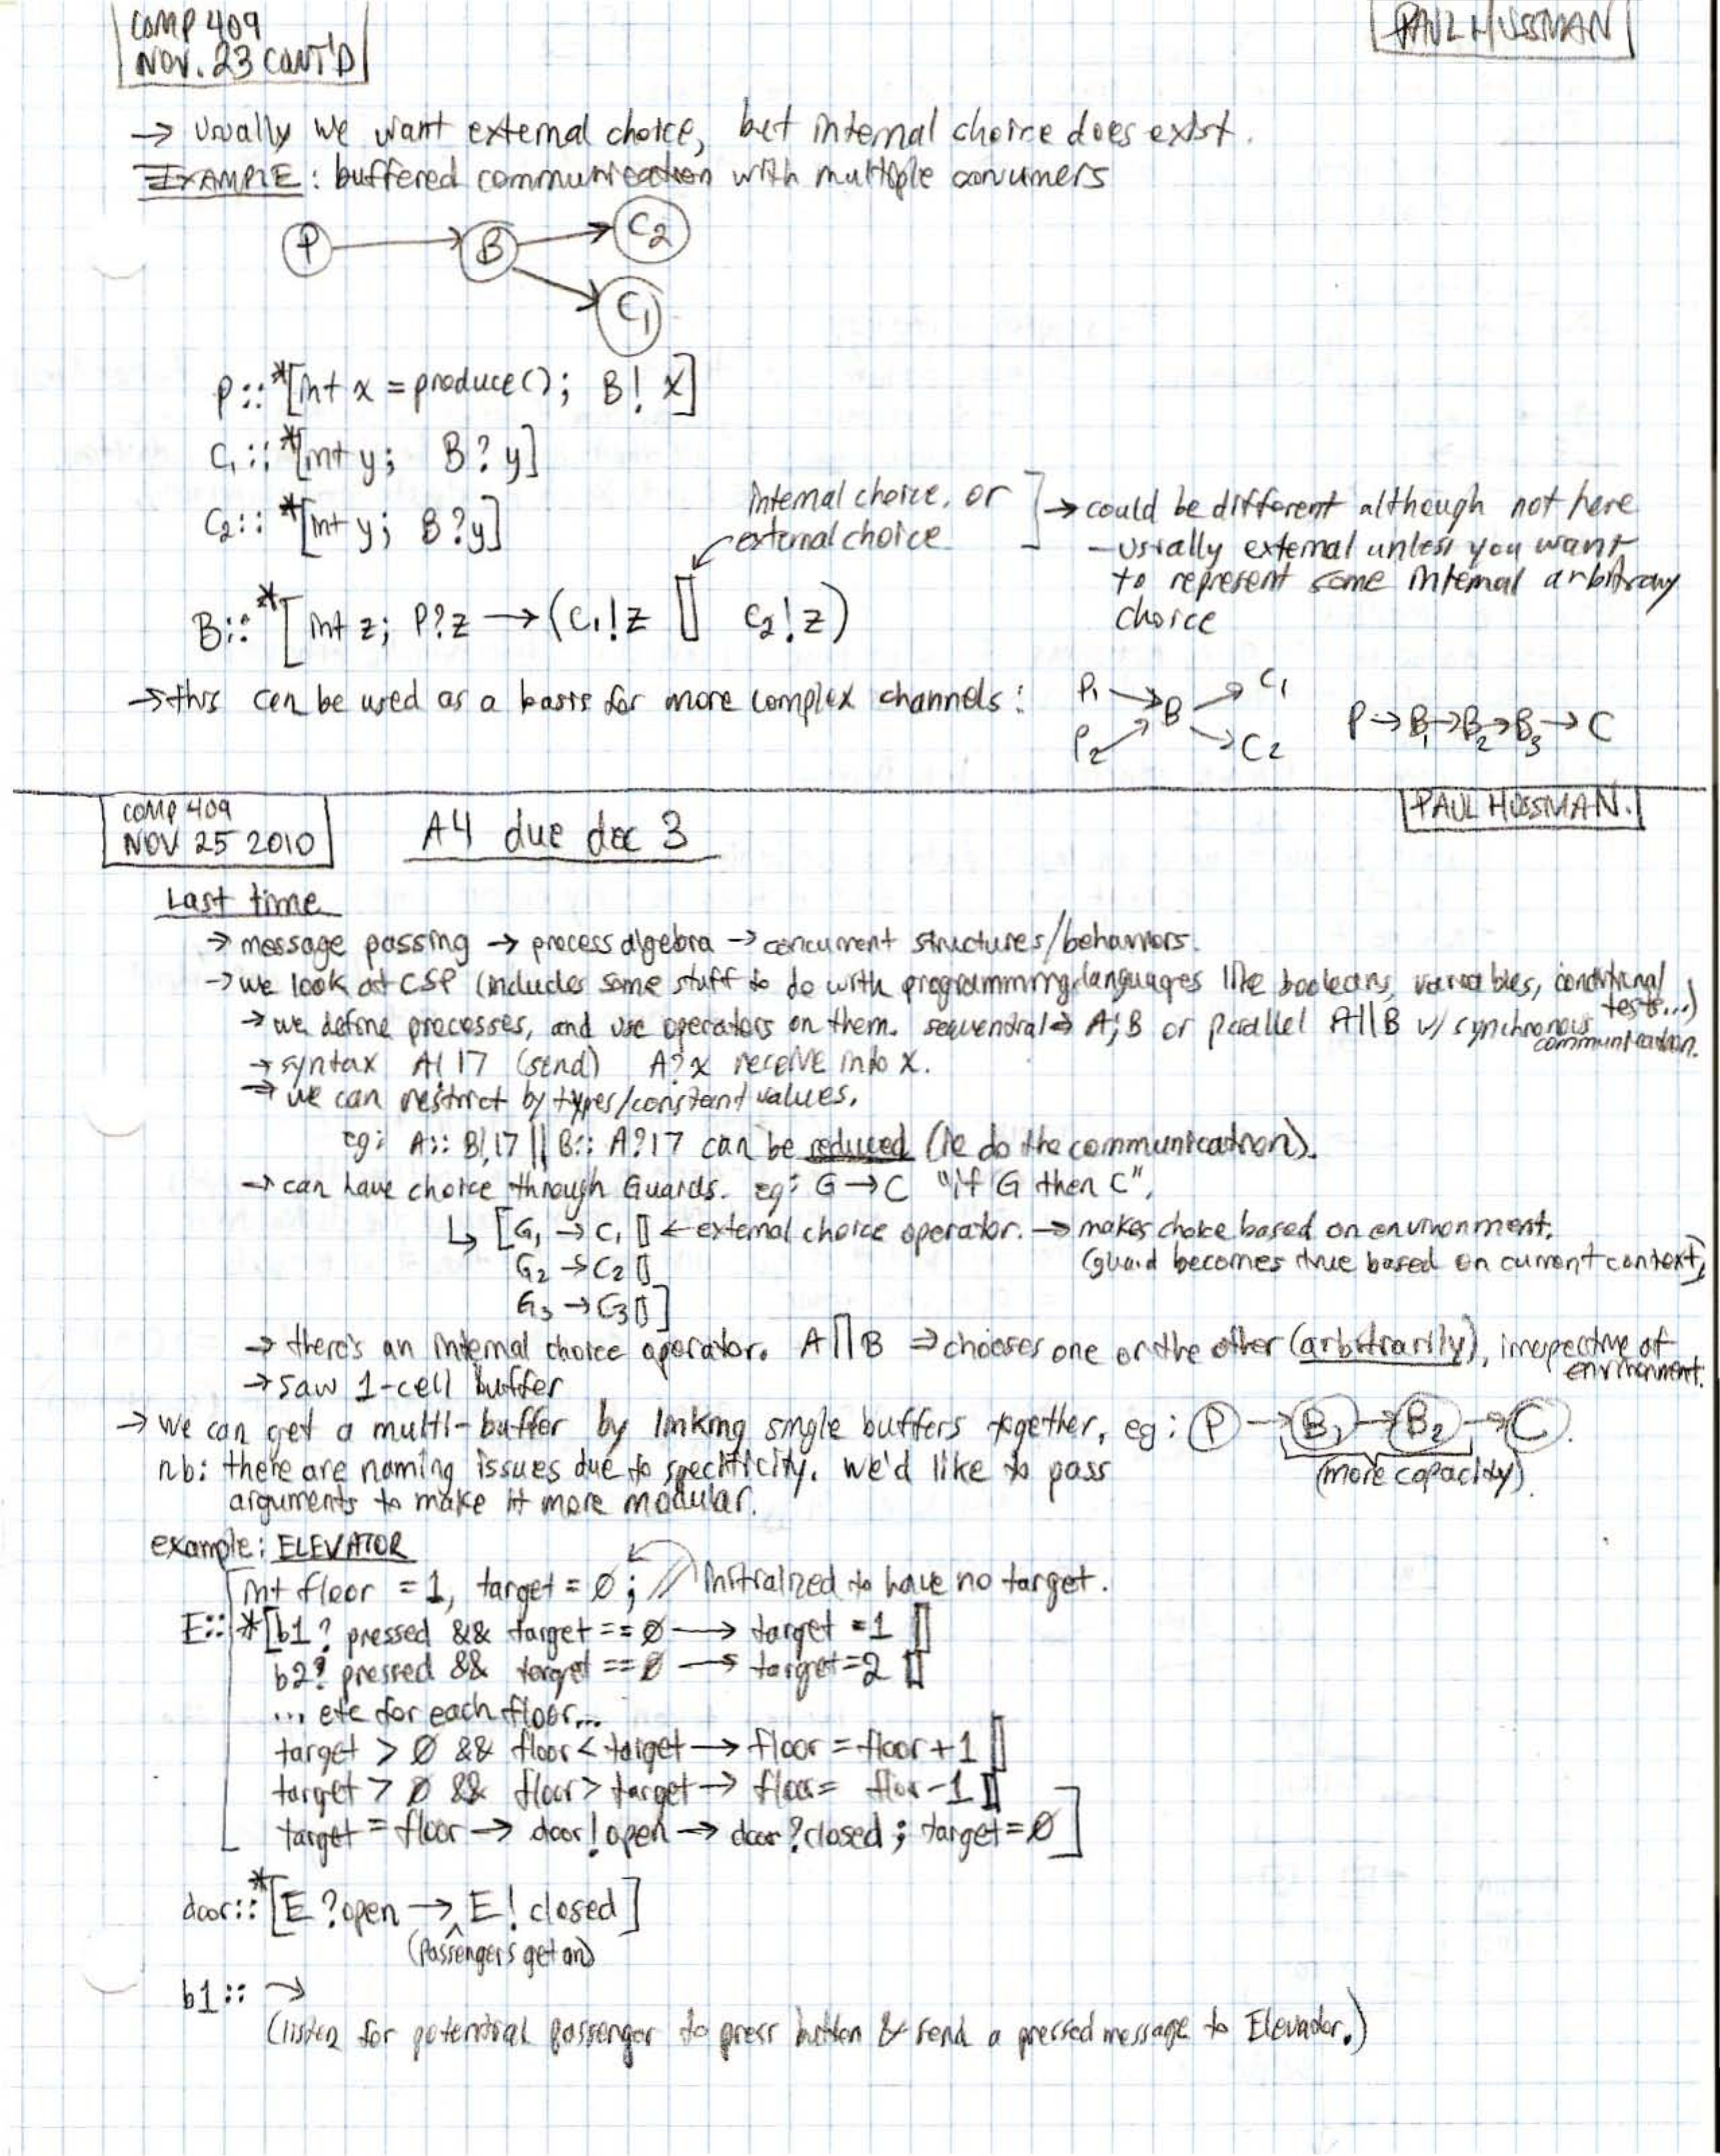 COMP 409
NOV. 23 CONT'D
PAUL HUSSMAN
→ Usually we want external choice, but internal choice does exist.
EXAMPLE: buffered communication with multiple consumers
P B C2
C1
P::*[int x = produce(); B! x]
C1::*[int y; B? y]
C2::*[int y; B?y]
internal choice, or
external choice
→ could be different although not here
- usually external unless you want
to represent some internal arbitrary
choice
B::*[int z; P?z → (C1!z [] C2!z)
→ this can be used as a basis for more complex channels:
P1 → B → C1
P2 → C2
P→B1→B2→B3→C
COMP 409
NOV 25 2010
A4 due dec 3
PAUL HUSSMAN.
Last time
→ message passing → process algebra → concurrent structures/behaviors.
→ we look at CSP (includes some stuff to do with programming languages like booleans, variables, conditional tests...)
→ we define processes, and use operators on them. sequential⇒ A;B or parallel A||B w/ synchronous communication.
→ syntax A!17 (send) A?x receive into x.
→ we can restrict by types/constant values.
eg: A:: B!17 || B:: A?17 can be reduced (ie do the communication).
→ can have choice through Guards. eg: G→C "if G then C".
↳ [G1 → C1 [] ← external choice operator. → makes choice based on environment.
G2 → C2 []
(guard becomes true based on current context)
G3 → C3 []]
→ there's an internal choice operator. A∏B ⇒ chooses one or the other (arbitrarily), irrespective of environment.
→ saw 1-cell buffer
→ we can get a multi-buffer by linking single buffers together, eg: P → B1 → B2 → C.
(more capacity).
nb: there are naming issues due to specificity. we'd like to pass
arguments to make it more modular.
example: ELEVATOR
int floor = 1, target = 0; // initialized to have no target.
E:: *[b1? pressed && target == 0 → target = 1 []
b2? pressed && target == 0 → target=2 []
... etc for each floor...
target > 0 && floor < target → floor = floor+1 []
target > 0 && floor > target → floor = floor-1 []
target = floor → door!open → door?closed; target=0]
door::*[E?open → E! closed]
(Passengers get on)
b1:: →
(listen for potential passenger to press button & send a pressed message to Elevator.)